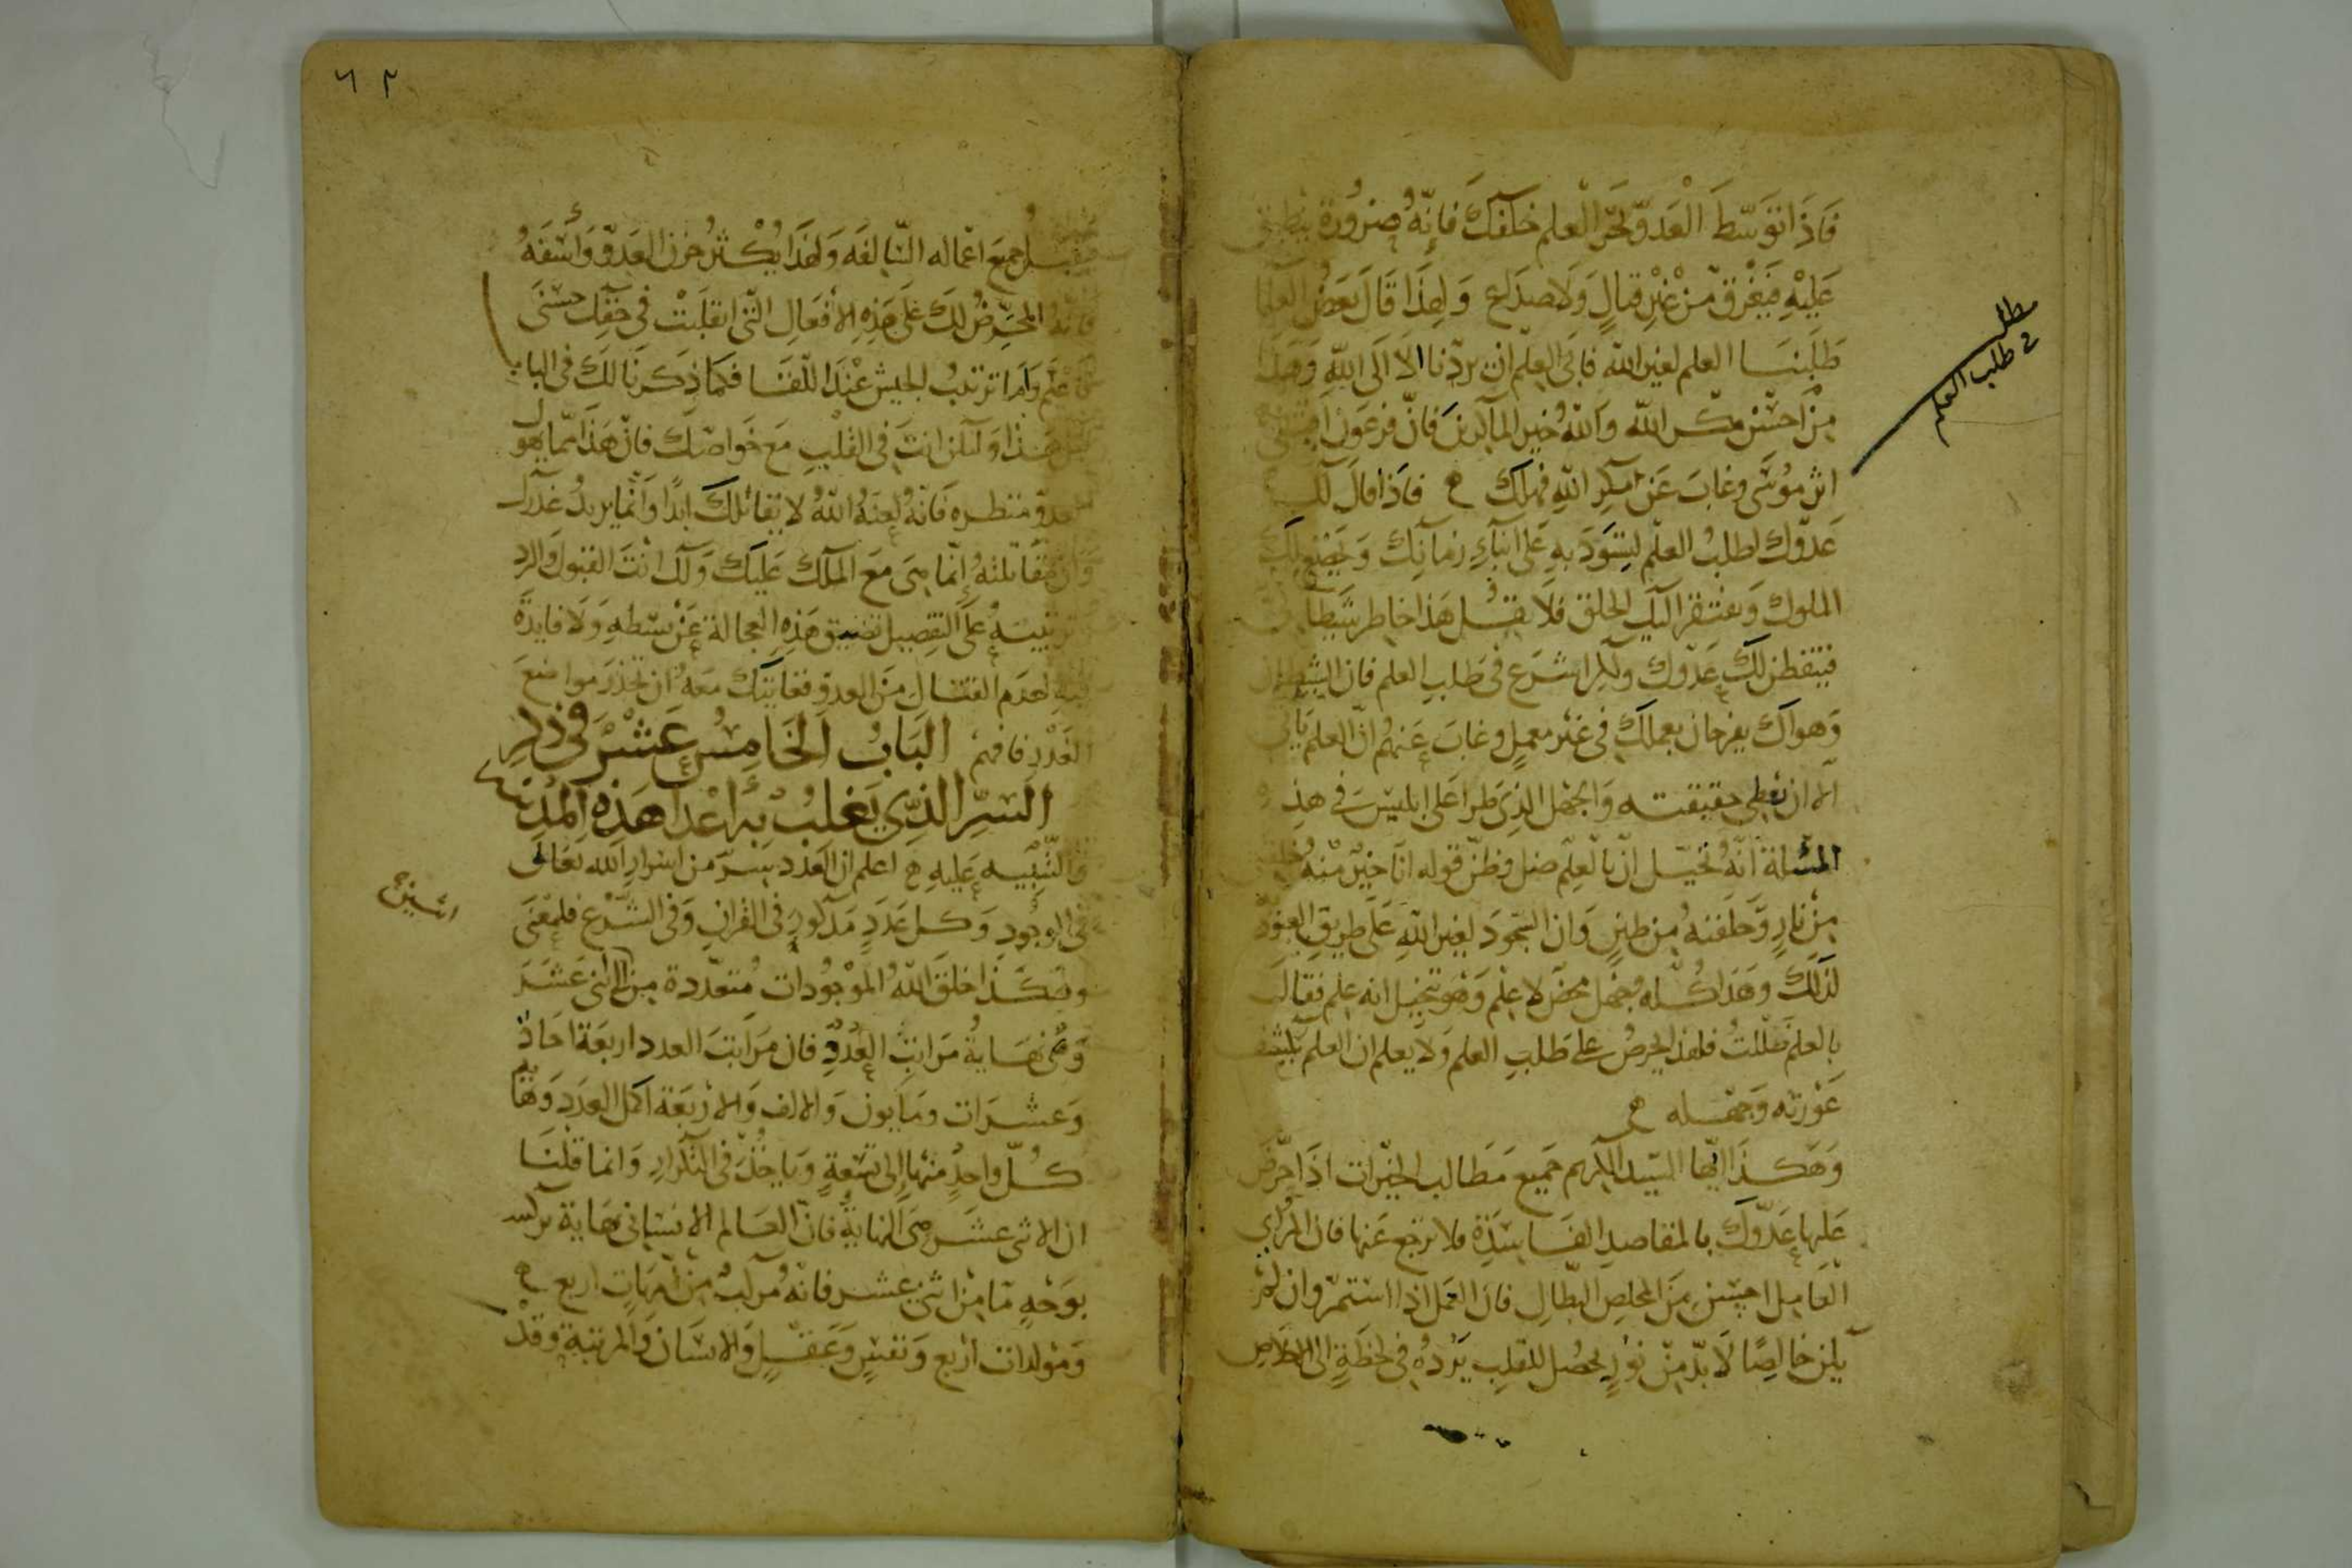 فَاذَا تَوَسّطَ العَدوّ بحَر العلم خلفكَ فانّهُ ضرورة ينطبق
عَليْهِ فيَغْرق منْ غيْرِ قتالٍ وَلَا صدَاع وَلهذَا قالَ بَعضُ العلما
طَلبْنَا العلم لغير الله فابَى العِلم ان يردّنا الا الَى اللّهِ وَهذا
مِنْ احسن مكر الله وَاللهُ خير الماكرينَ فانّ فرعَون اقتفى
اثر مُوسَى وغابَ عَن مكرِ اللهِ فهلك ۞ فاذا قالَ لكَ
عَدوّك اطلبُ العلم لتسُودَ بهِ عَلى ابناءِ زمانِك وَيخضع لكَ
الملوك وَيفتقر اليكَ الخلق فلا يقبل هَذا خاطر شيطانى
فيتفطن لكَ عَدوّك ولكن اشرَع فى طَلبِ العلم فان الشيطان
وَهواك يفرحان بعملكَ فى غَير معمل وغابَ عَنهُم انّ العلم يَابى
الا ان يعطى حقيقته وَالجَهْل الذِى طرا عَلى ابليسَ فى هذه
المسئلة انّهُ تخيّل انّ بالعلم ضل وظنّ قوله انا خير منهُ خلقتنى
مِنْ نارٍ وَخلقتهُ مِن طينٍ وَان السّجُودَ لغيرِ اللهِ عَلى طَريقِ العبُودة
لذَلكَ وَهَذا كُله جهل محض لا علم وَهو يتخيل انه علم فقالَ
بالعلم ضللتُ فلهذا يحرصُ على طَلبِ العلم وَلا يعلم ان العلم يكشف
عَوْرته وَجهله ۞
وَهَكذا ايّها السّيد الكريم جَميع مَطالب الخيرات اذَا حرّضَ
عَليها عَدوّكَ بالمقاصدِ الفَاسدَةِ فلا ترجع عَنها فان المُرائى
العَامِل احسَن مِنَ المخلص البَطالِ فان العَمل اذا استمرّ وان لمْ
يكن خالصًا لَا بدّ مِنْ نورٍ يحصُل للقلبِ يَردهُ فى لحظَةٍ الى الاخلاص
مطلب
فى طلب العلم
٦٢
جميعَ اعماله السّالفَه وَلهَذا يكثرُ حزن العَدوّ وَأسَفهُ
فانّهُ المحرّضُ لكَ عَلَى هَذِهِ الافعَالِ التّى انقلَبتْ فى حَقّك حسنى
وَامَا ترتيبُ الجَيش عنْدَ اللّقَا فكما ذكرنا لكَ فى البابِ
قبل هَذا وَلتكن انتَ فى القلْبِ مَعَ خَواصّك فانّ هَذا ممّا يهول
العدوّ منظره فانّهُ لعنهُ اللهُ لا يقاتلكَ ابدًا وَانّما يريدُ غدرك
وَان مقاتلتهُ إنّما هىَ مَعَ الملك عَليكَ وَلكَ انتَ القبُول وَالرد
وترتيبهِ عَلى التفصِيل تضيق هَذِهِ العجالة عَنْ بسْطهِ وَلا فايدَة
فيهِ لعدَمِ القتَالِ مِنَ العدوّ فغايتك معَهُ ان تحذرَ مواضعَ
الغَدْرِ فافهمْ البَابُ الخَامِسُ عَشرَ فى ذِكرِ
السِّرِ الذِى يَغلبُ بهِ اعْدا هَذِهِ المدينه
وَالتنبيه عَليهِ ۞ اعلم ان العَدد سِرّ من اسرَارِ الله تعَالَى
فى الوجُودِ وَكل عَدَدٍ مَذكورٍ فى القرانِ وَفى الشّرع فلمعْنَى
وَهكَذا خلقَ اللهُ الموْجُودات مُتعدّدة مِن الى اثنى عَشَرَ
وَهى نهَايَةُ مَراتبَ العَدَدِ فان مَراتبَ العدد اربَعَة احَاد
وَعشرَات ومَايون وَالالف وَالاربَعَة اكمل العَدَدِ وَهَا
كُلّ واحدٍ منْهَا إلى تسْعَةٍ وَياخُذَ فى التكرارِ وَانما قلنَا
ان الاثنى عشَر هىَ النهايةُ فانّ العَالم الانسَانى نهَاية تركيبه
بوَجْهٍ ما مِنْ اثنى عشر فانّهُ مُركبٌ مِنْ امّهَاتٍ اربع ۞
وَمولدات أربَع وَنفسٍ وَعَقلٍ وَالانسَان وَالمرتبة وَقدْ
اثنين